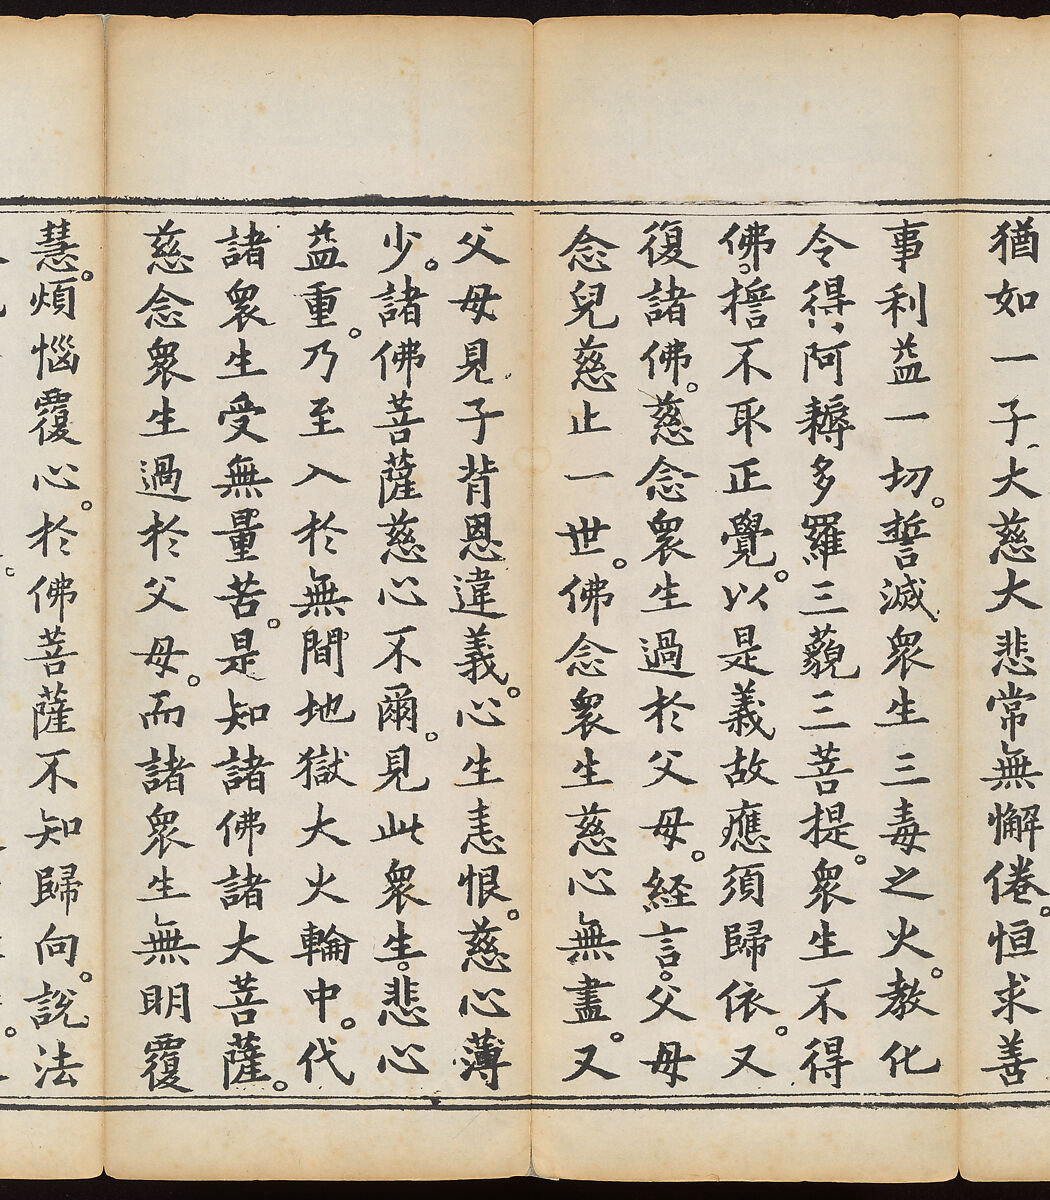 猶如一子大慈大悲常無懈倦。恒求善
事利益一切。誓滅衆生三毒之火。教化
令得阿耨多羅三藐三菩提。衆生不得
佛。擔不取正覺。以是義故應須歸依。又
復諸佛。慈念衆生過於父母。經言。父母
念兒慈止一世。佛念衆生慈心無盡。又
父母見子背恩違義。心生恚恨。慈心薄
少。諸佛菩薩慈心不爾。見此衆生。悲心
益重。乃至入於無間地獄大火輪中。代
諸衆生受無量苦。是知諸佛諸大菩薩。
慈念衆生過於父母。而諸衆生無明覆
慧。煩惱覆心。於佛菩薩不知歸向。說法